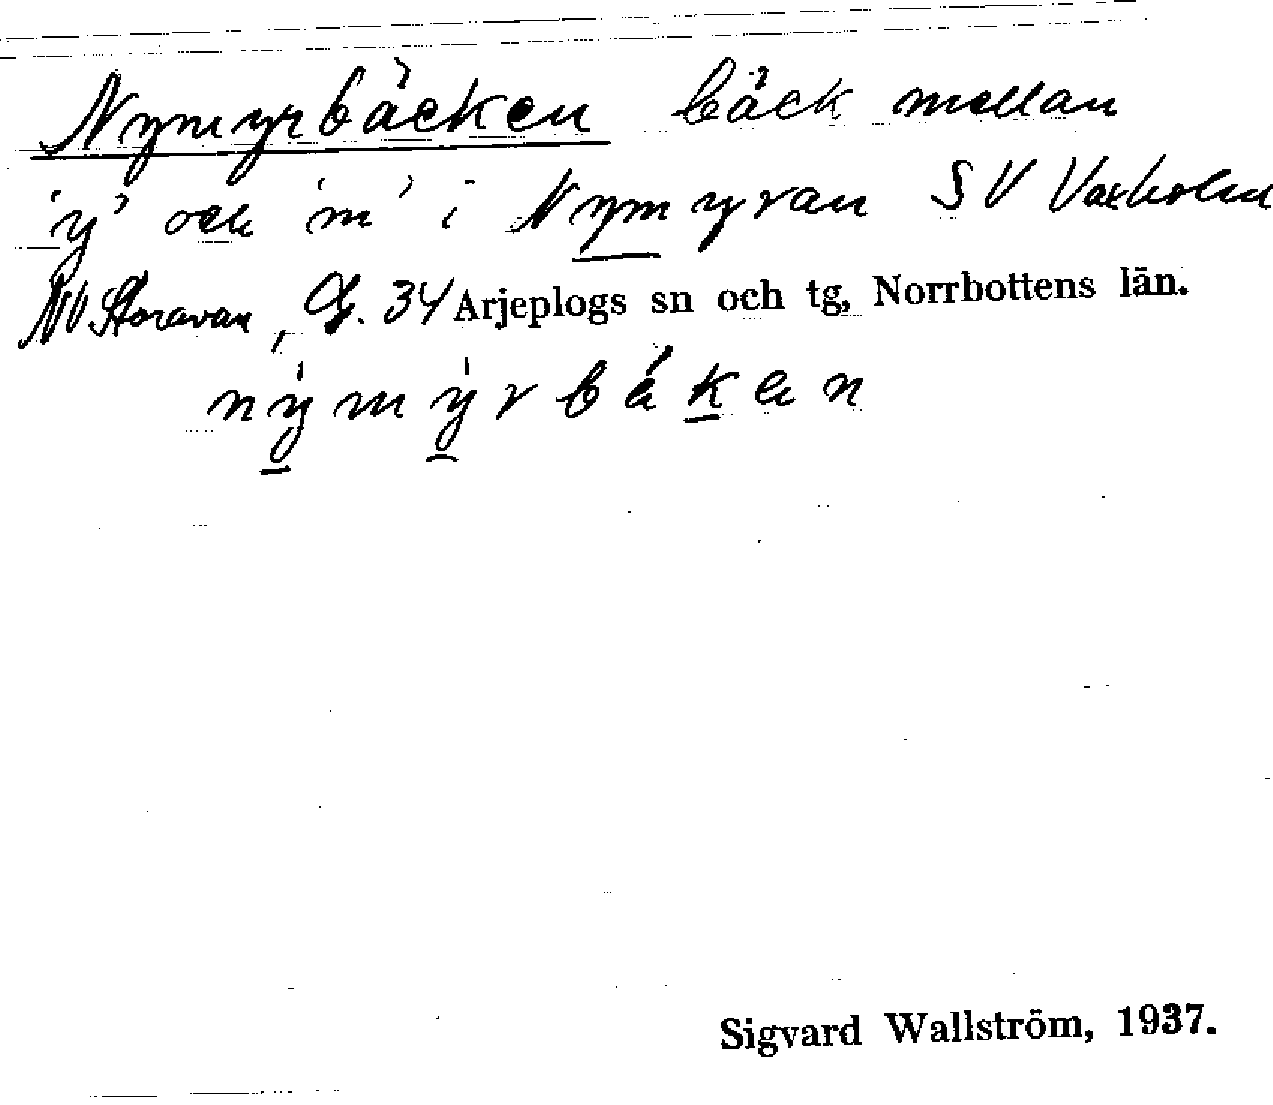 Nymyrbäcken bäck mellan
'y' och 'm' i Nymyran SV Vaxholm
NV Storavan, G. 34 Arjeplogs sn och tg, Norrbottens län.
nỳmy̍rbákan
Sigvard Wallström, 1937.